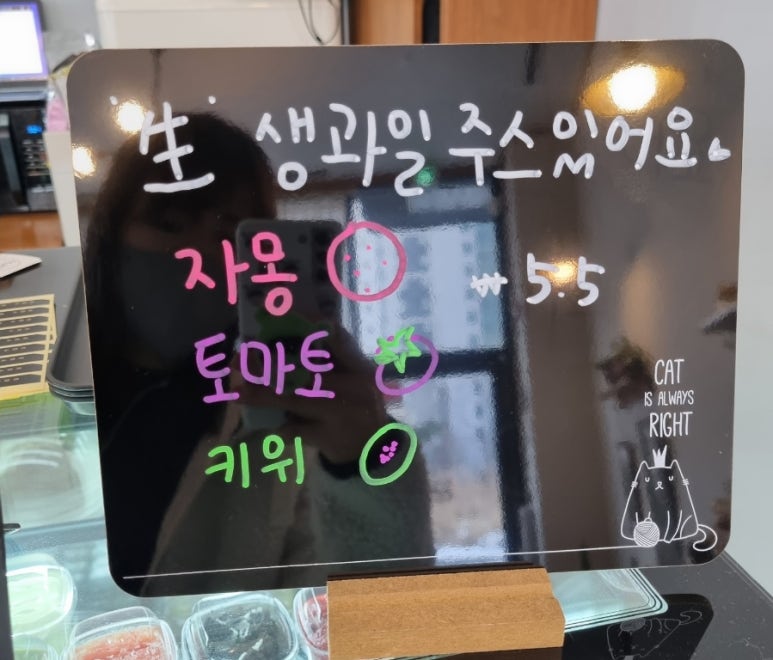 '生' 생과일 주스 있어요.
자몽 ₩ 5.5
토마토
키위
CAT
IS ALWAYS
RIGHT